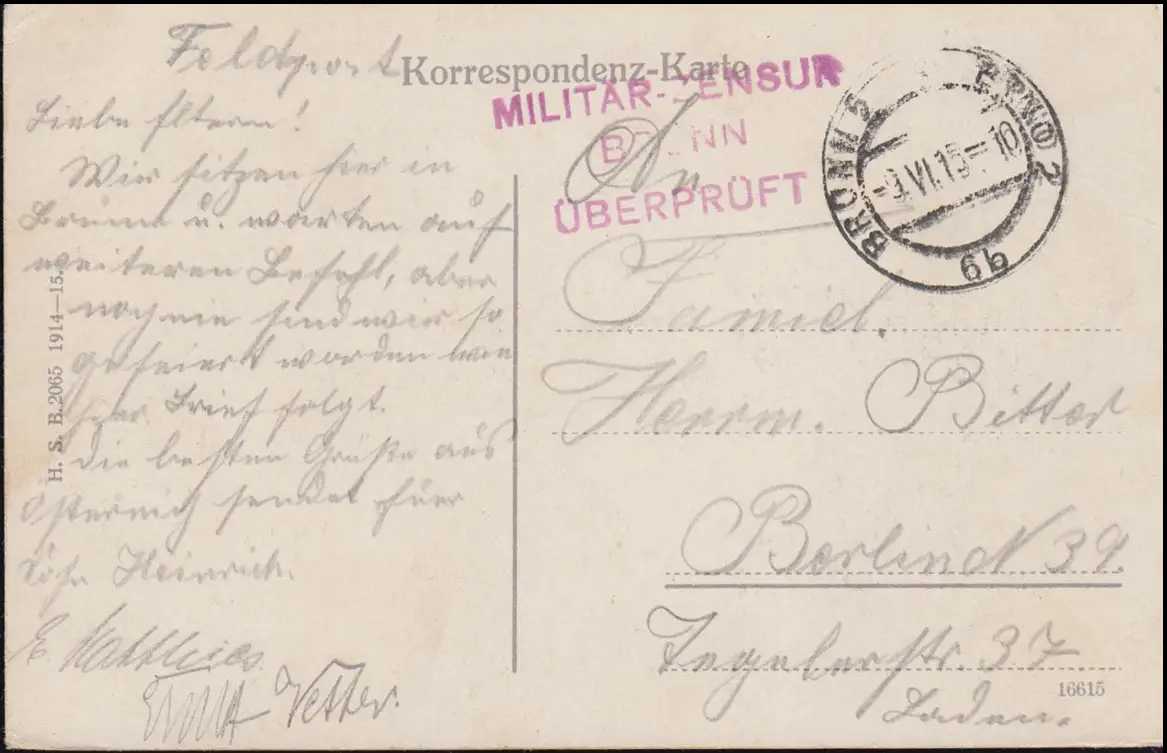 Feldpost
Korrespondenz-Karte
MILITÄR-ZENSUR
BRÜNN
ÜBERPRÜFT
BRÜNN 5 BRNO 2
-9.VI.15-10
99
Liebe Eltern!
Wir sitzen hier in
Brünn u. warten auf
weiteren Befehl, aber
noch nie sind wir so
gefeiert worden wie
hier. Brief folgt.
Die besten Grüße aus
Österreich sendet Euer
Sohn Heinrich.
E. Matthies
Vetter.
H. S. B. 2065 1914—15.
An
Famiel.
Herrm. Bitter
Berlin N 39.
Tegelerstr. 37
Laden.
16615